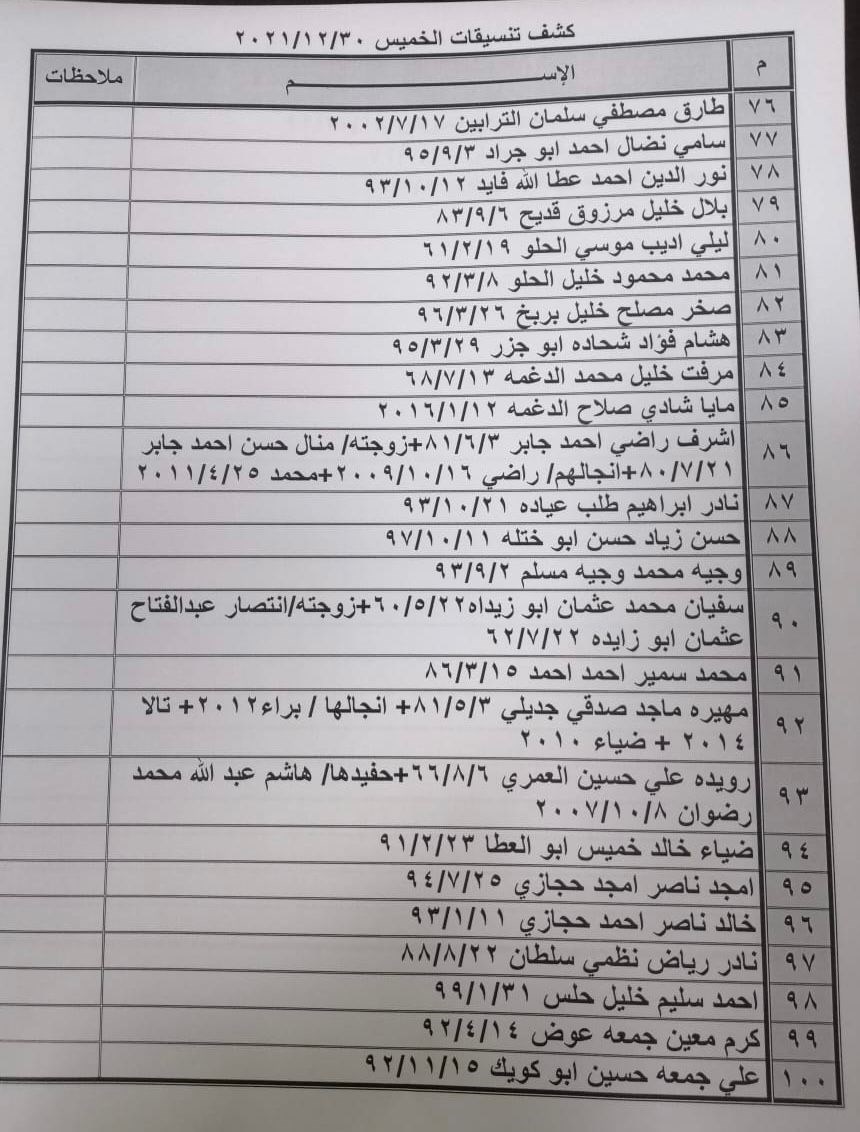 كشف تنسيقات الخميس ٢٠٢١/١٢/٣٠
م الإســـــم ملاحظات
٧٦ طارق مصطفي سلمان الترابين ٢٠٠٢/٧/١٧
٧٧ سامي نضال احمد ابو جراد ٩٥/٩/٣
٧٨ نور الدين احمد عطا الله فايد ٩٣/١٠/١٢
٧٩ بلال خليل مرزوق قديح ٨٣/٩/٦
٨٠ ليلي اديب موسي الحلو ٦١/٢/١٩
٨١ محمد محمود خليل الحلو ٩٢/٣/٨
٨٢ صخر مصلح خليل بربخ ٩٦/٣/٢٦
٨٣ هشام فؤاد شحاده ابو جزر ٩٥/٣/٢٩
٨٤ مرفت خليل محمد الدغمه ٦٨/٧/١٣
٨٥ مايا شادي صلاح الدغمه ٢٠١٦/١/١٢
٨٦ اشرف راضي احمد جابر ٨١/٦/٣+زوجته/ منال حسن احمد جابر
٨٠/٧/٢١+انجالهم/ راضي ٢٠٠٩/١٠/١٦+محمد ٢٠١١/٤/٢٥
٨٧ نادر ابراهيم طلب عياده ٩٣/١٠/٢١
٨٨ حسن زياد حسن ابو ختله ٩٧/١٠/١١
٨٩ وجيه محمد وجيه مسلم ٩٣/٩/٢
٩٠ سفيان محمد عثمان ابو زيداه٦٠/٥/٢٢+زوجته/انتصار عبدالفتاح
عثمان ابو زايده ٦٢/٧/٢٢
٩١ محمد سمير احمد احمد ٨٦/٣/١٥
٩٢ مهيره ماجد صدقي جديلي ٨١/٥/٣+ انجالها / براء٢٠١٢+ تالا
٢٠١٤ + ضياء ٢٠١٠
٩٣ رويده علي حسين العمري ٦٦/٨/٦+حفيدها/ هاشم عبد الله محمد
رضوان ٢٠٠٧/١٠/٨
٩٤ ضياء خالد خميس ابو العطا ٩١/٢/٢٣
٩٥ امجد ناصر امجد حجازي ٩٤/٧/٢٥
٩٦ خالد ناصر احمد حجازي ٩٣/١/١١
٩٧ نادر رياض نظمي سلطان ٨٨/٨/٢٢
٩٨ احمد سليم خليل حلس ٩٩/١/٣١
٩٩ كرم معين جمعه عوض ٩٢/٤/١٤
١٠٠ علي جمعه حسين ابو كويك ٩٢/١١/١٥